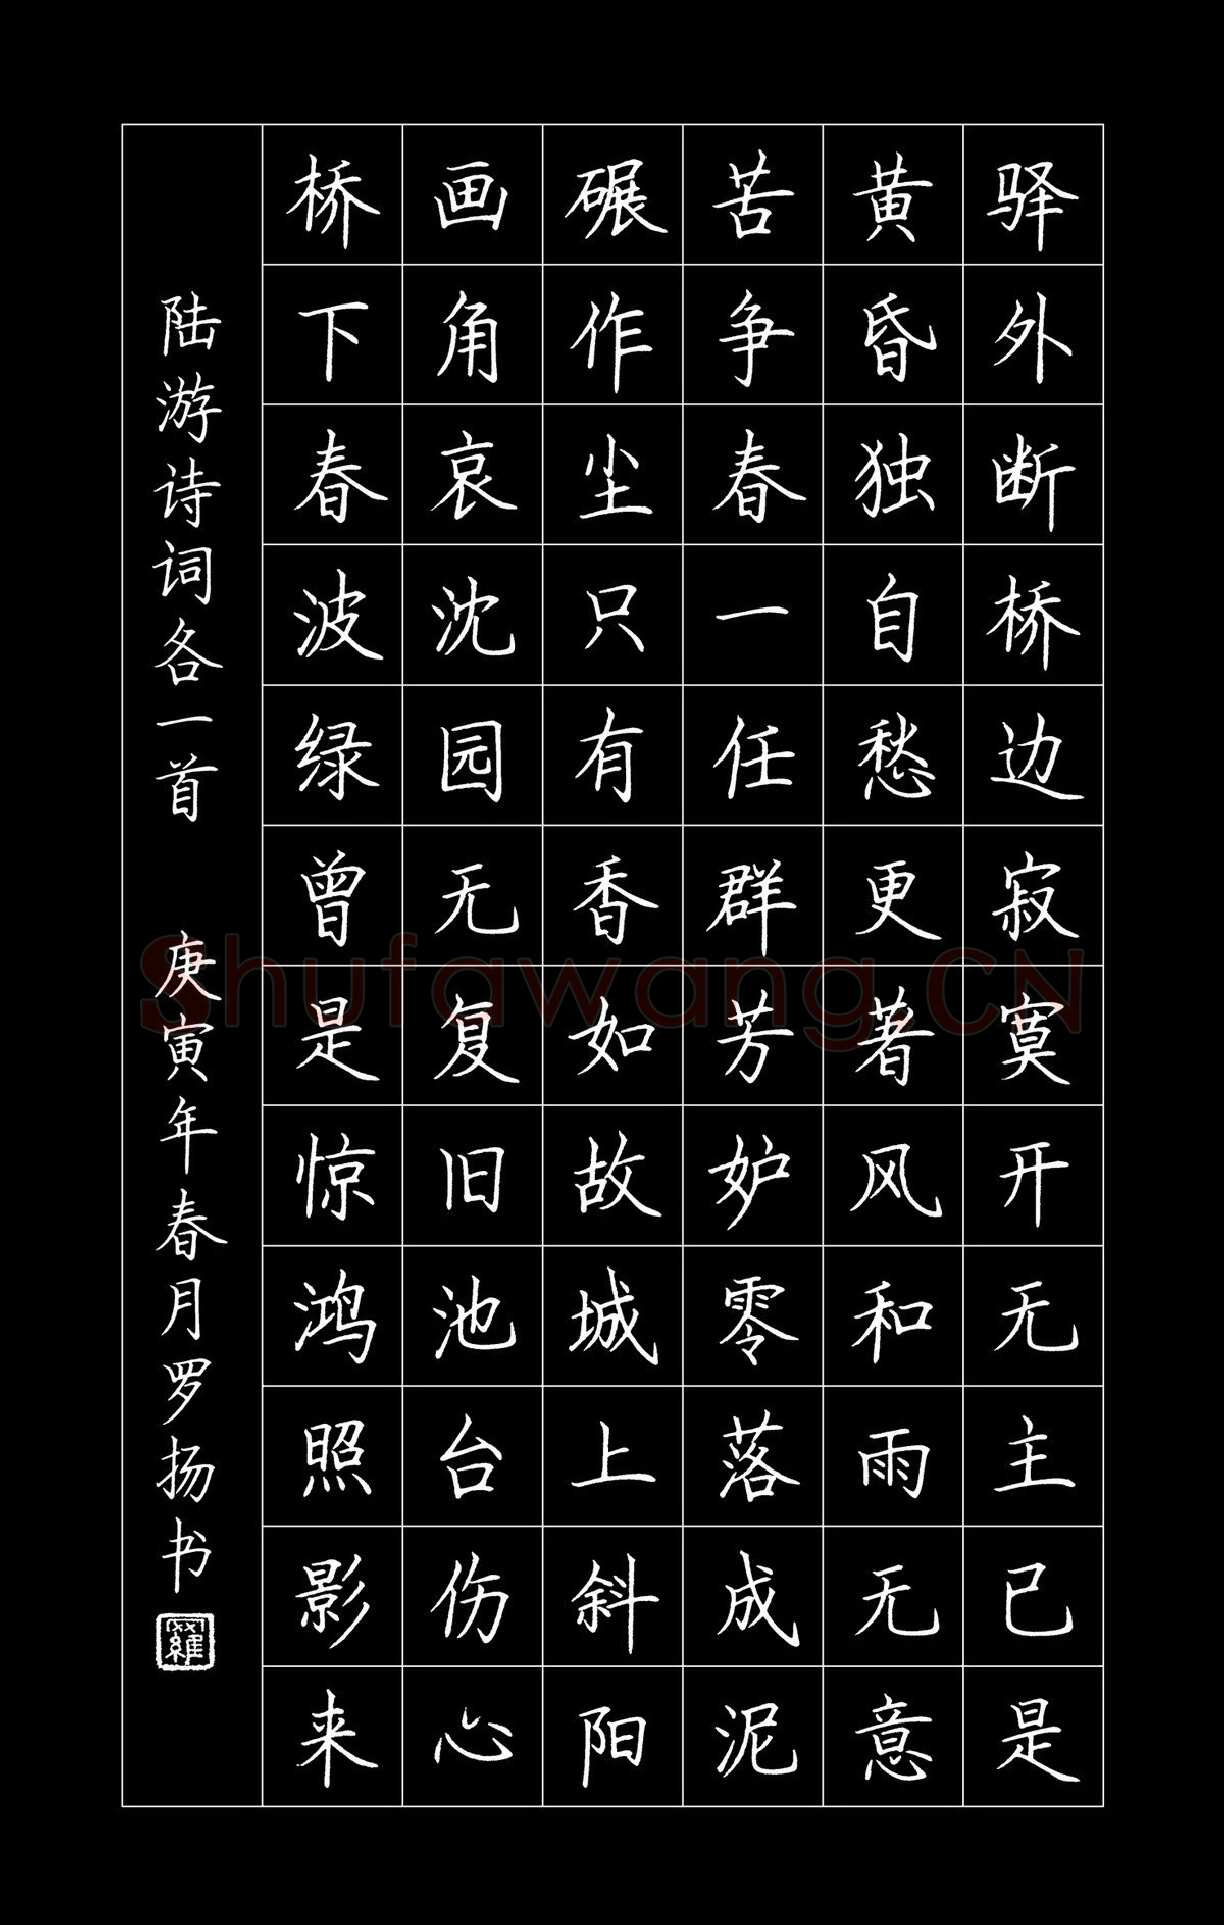 驿外断桥边寂寞开无主已是
黄昏独自愁更著风和雨无意
苦争春一任群芳妒零落成泥
碾作尘只有香如故城上斜阳
画角哀沈园无复旧池台伤心
桥下春波绿曾是惊鸿照影来
陆游诗词各一首 庚寅年春月罗扬书
羅
Shufawang.CN